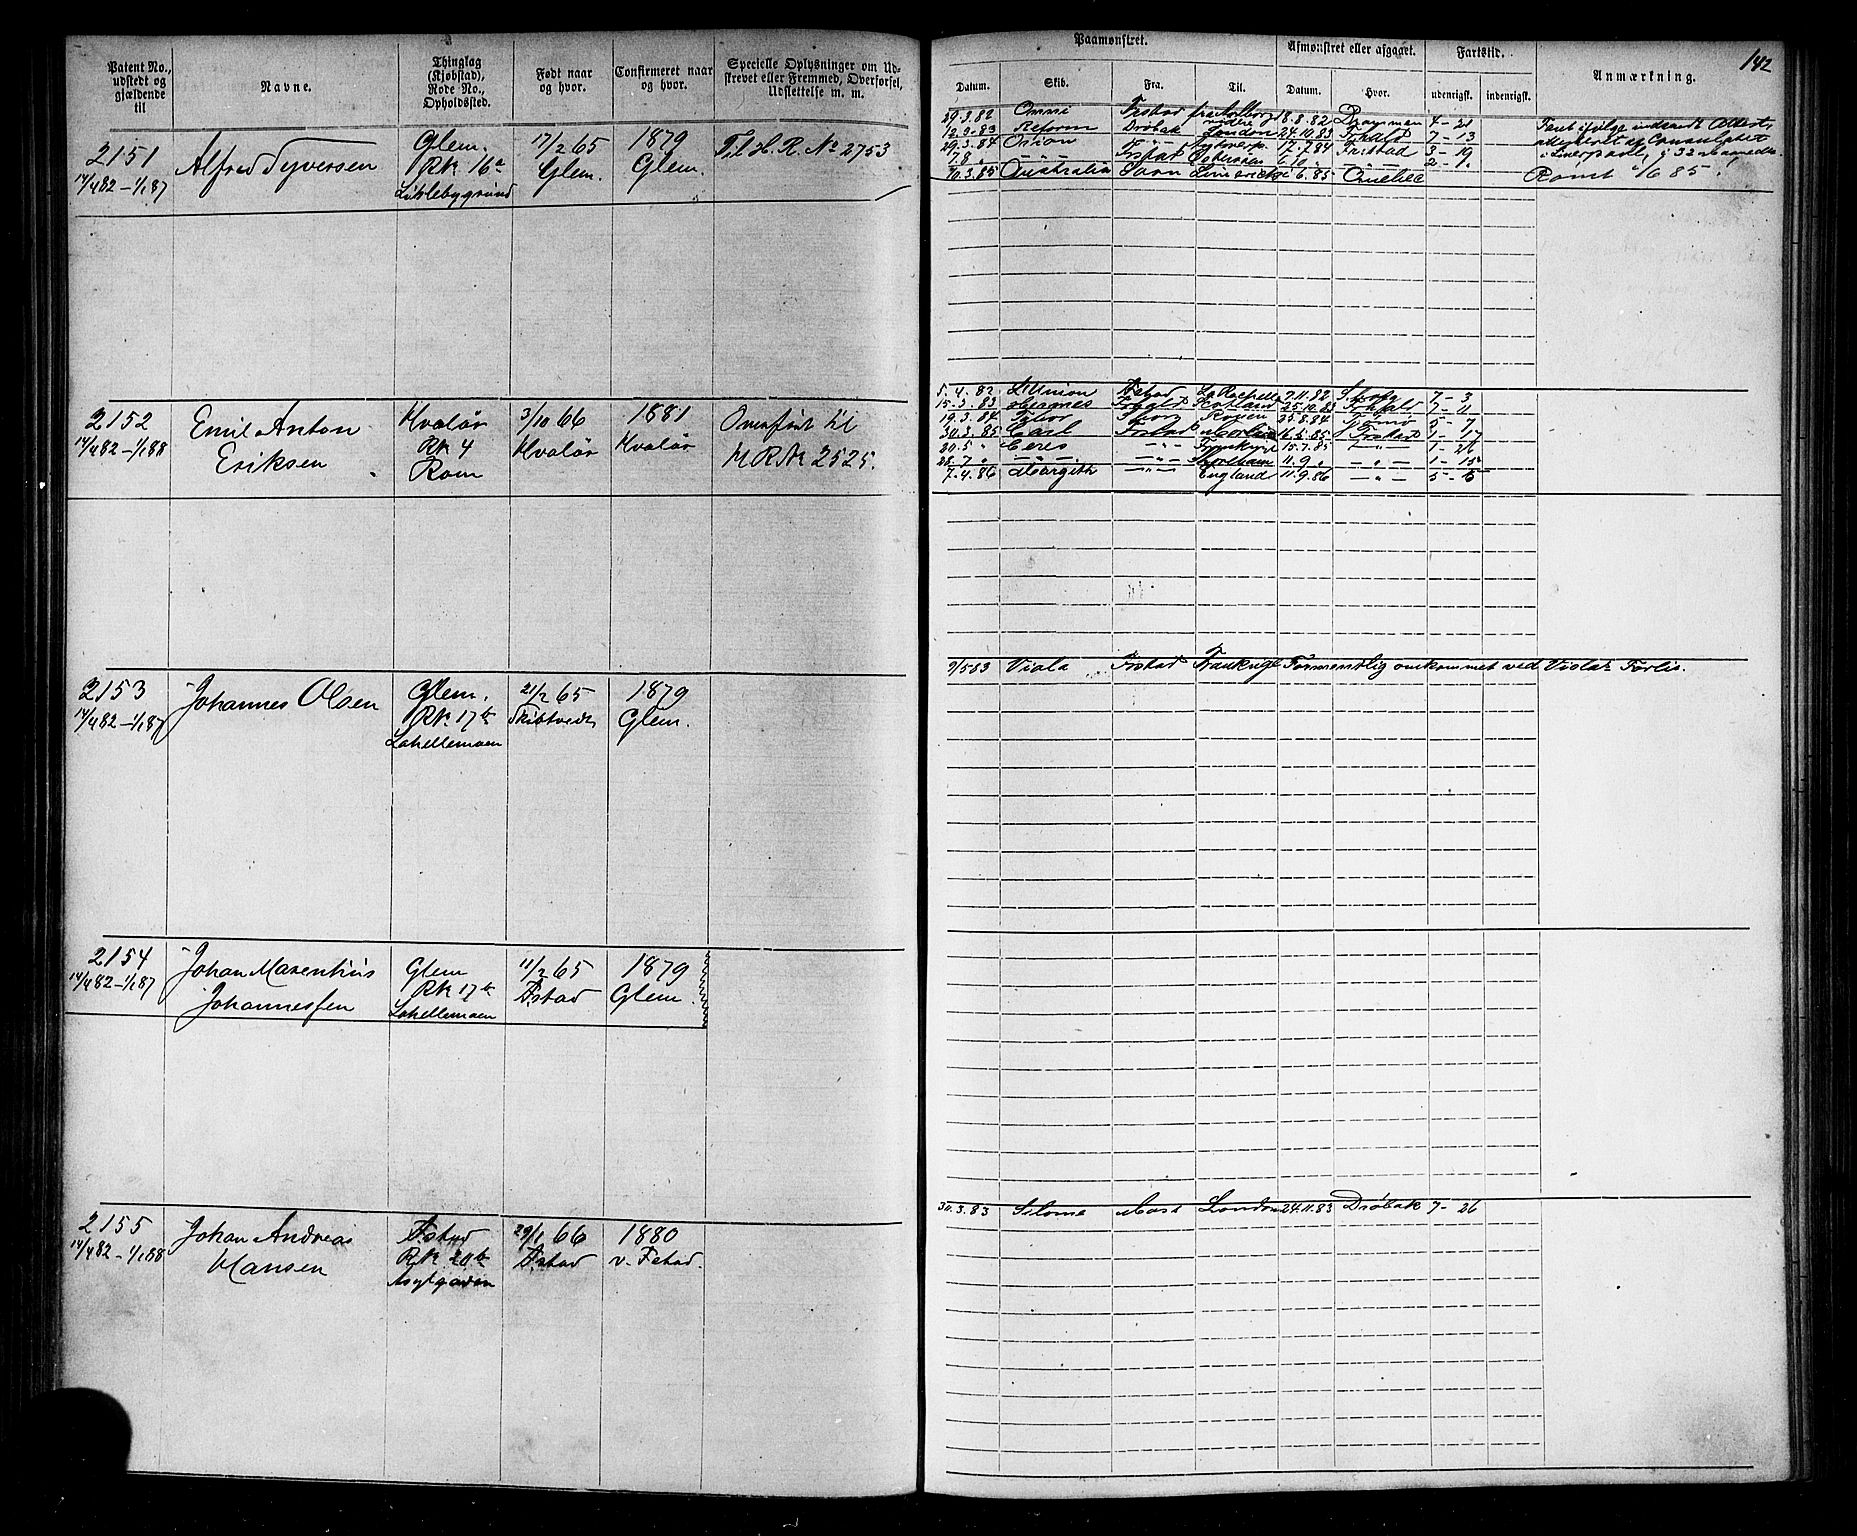 Patent No.,
udstedt og
gjældende
til
Navne.
Thinglag
(Kjøbstad),
Rode No.,
Opholdssted.
Født naar
og hvor.
Confirmeret naar
og hvor.
Specielle Oplysninger om Ud-
skrevet eller Fremmed, Overførsel,
Udslettelse m. m.
2151
14/4 82 – 1/1 87
Alfred Syversen
Glem.
Rk 16a
Lislebygrund
17/2 65
Glem.
1879
Glem.
Til H. R. No 2753
2152
14/4 82 – 1/1 88
Emil Anton
Eriksen
Hvalør
Rk 4
Rom
3/10 66
Hvalør
1881
Hvalør
Overført til
HRNr 2525.
2153
14/4 82 – 1/1 87
Johannes Olsen
Glem.
Rk. 17b
Lahellemoen
21/2 65
Skibtvedt
1879
Glem.
2154
14/4 82 – 1/1 87
Johan Marentius
Johannessen
Glem
Rk 17b
Lahellemoen
11/2 65
Fstad
1879
Glem.
2155
14/4 82 – 1/1 88
Johan Andreas
Hansen
Fstad
Rk 20b
Asylgaden
29/1 66
Fstad
1880
v. Fstad.
142
Paamønstret.
Afmønstret eller afgaaet.
Fartstid.
Anmærkning.
Datum.
Skib.
Fra.
Til.
Datum.
Hvor.
udenrigsk.
indenrigsk.
29.3.82 Omni Frstad 18.8.82 Drammen 4 - 21
12.3.83 Reform Drøbak London 24.10.83 Frhald 7 - 13
29.3.84 Orion — " — 17.7.84 Frstad 3 - 19
7.8. " — " — Frstad 6.10. " — " — 2 - 1.
10.3.85 Australia 6.85 Quebec
Rømt 1/6 85.
5.4.82 Union Fstad La Rochelle 7.11.82 7 - 3
15.3.83 Magnes Frhald 25.10.83 Frhald 7 - 11
19.3.84 Thor Rouen 25.8.84 5 - 7
30.3.85 Carl Frstad 16.5.85 Frstad 1 - 17
20.5 " Ceres — " — 15.7.85 — " — 1 - 26
28.7 " — " — — " — 11.9 " — " — 1 - 15
7.4.86 Margith — " — England 11.9.86 — " — 5 - 5
9/5 83 Viola Frstad Frankrige Formentlig omkommet ved Violas Forlis.
30.3.83 Moss London 24.11.83 Drøbak 7 - 26